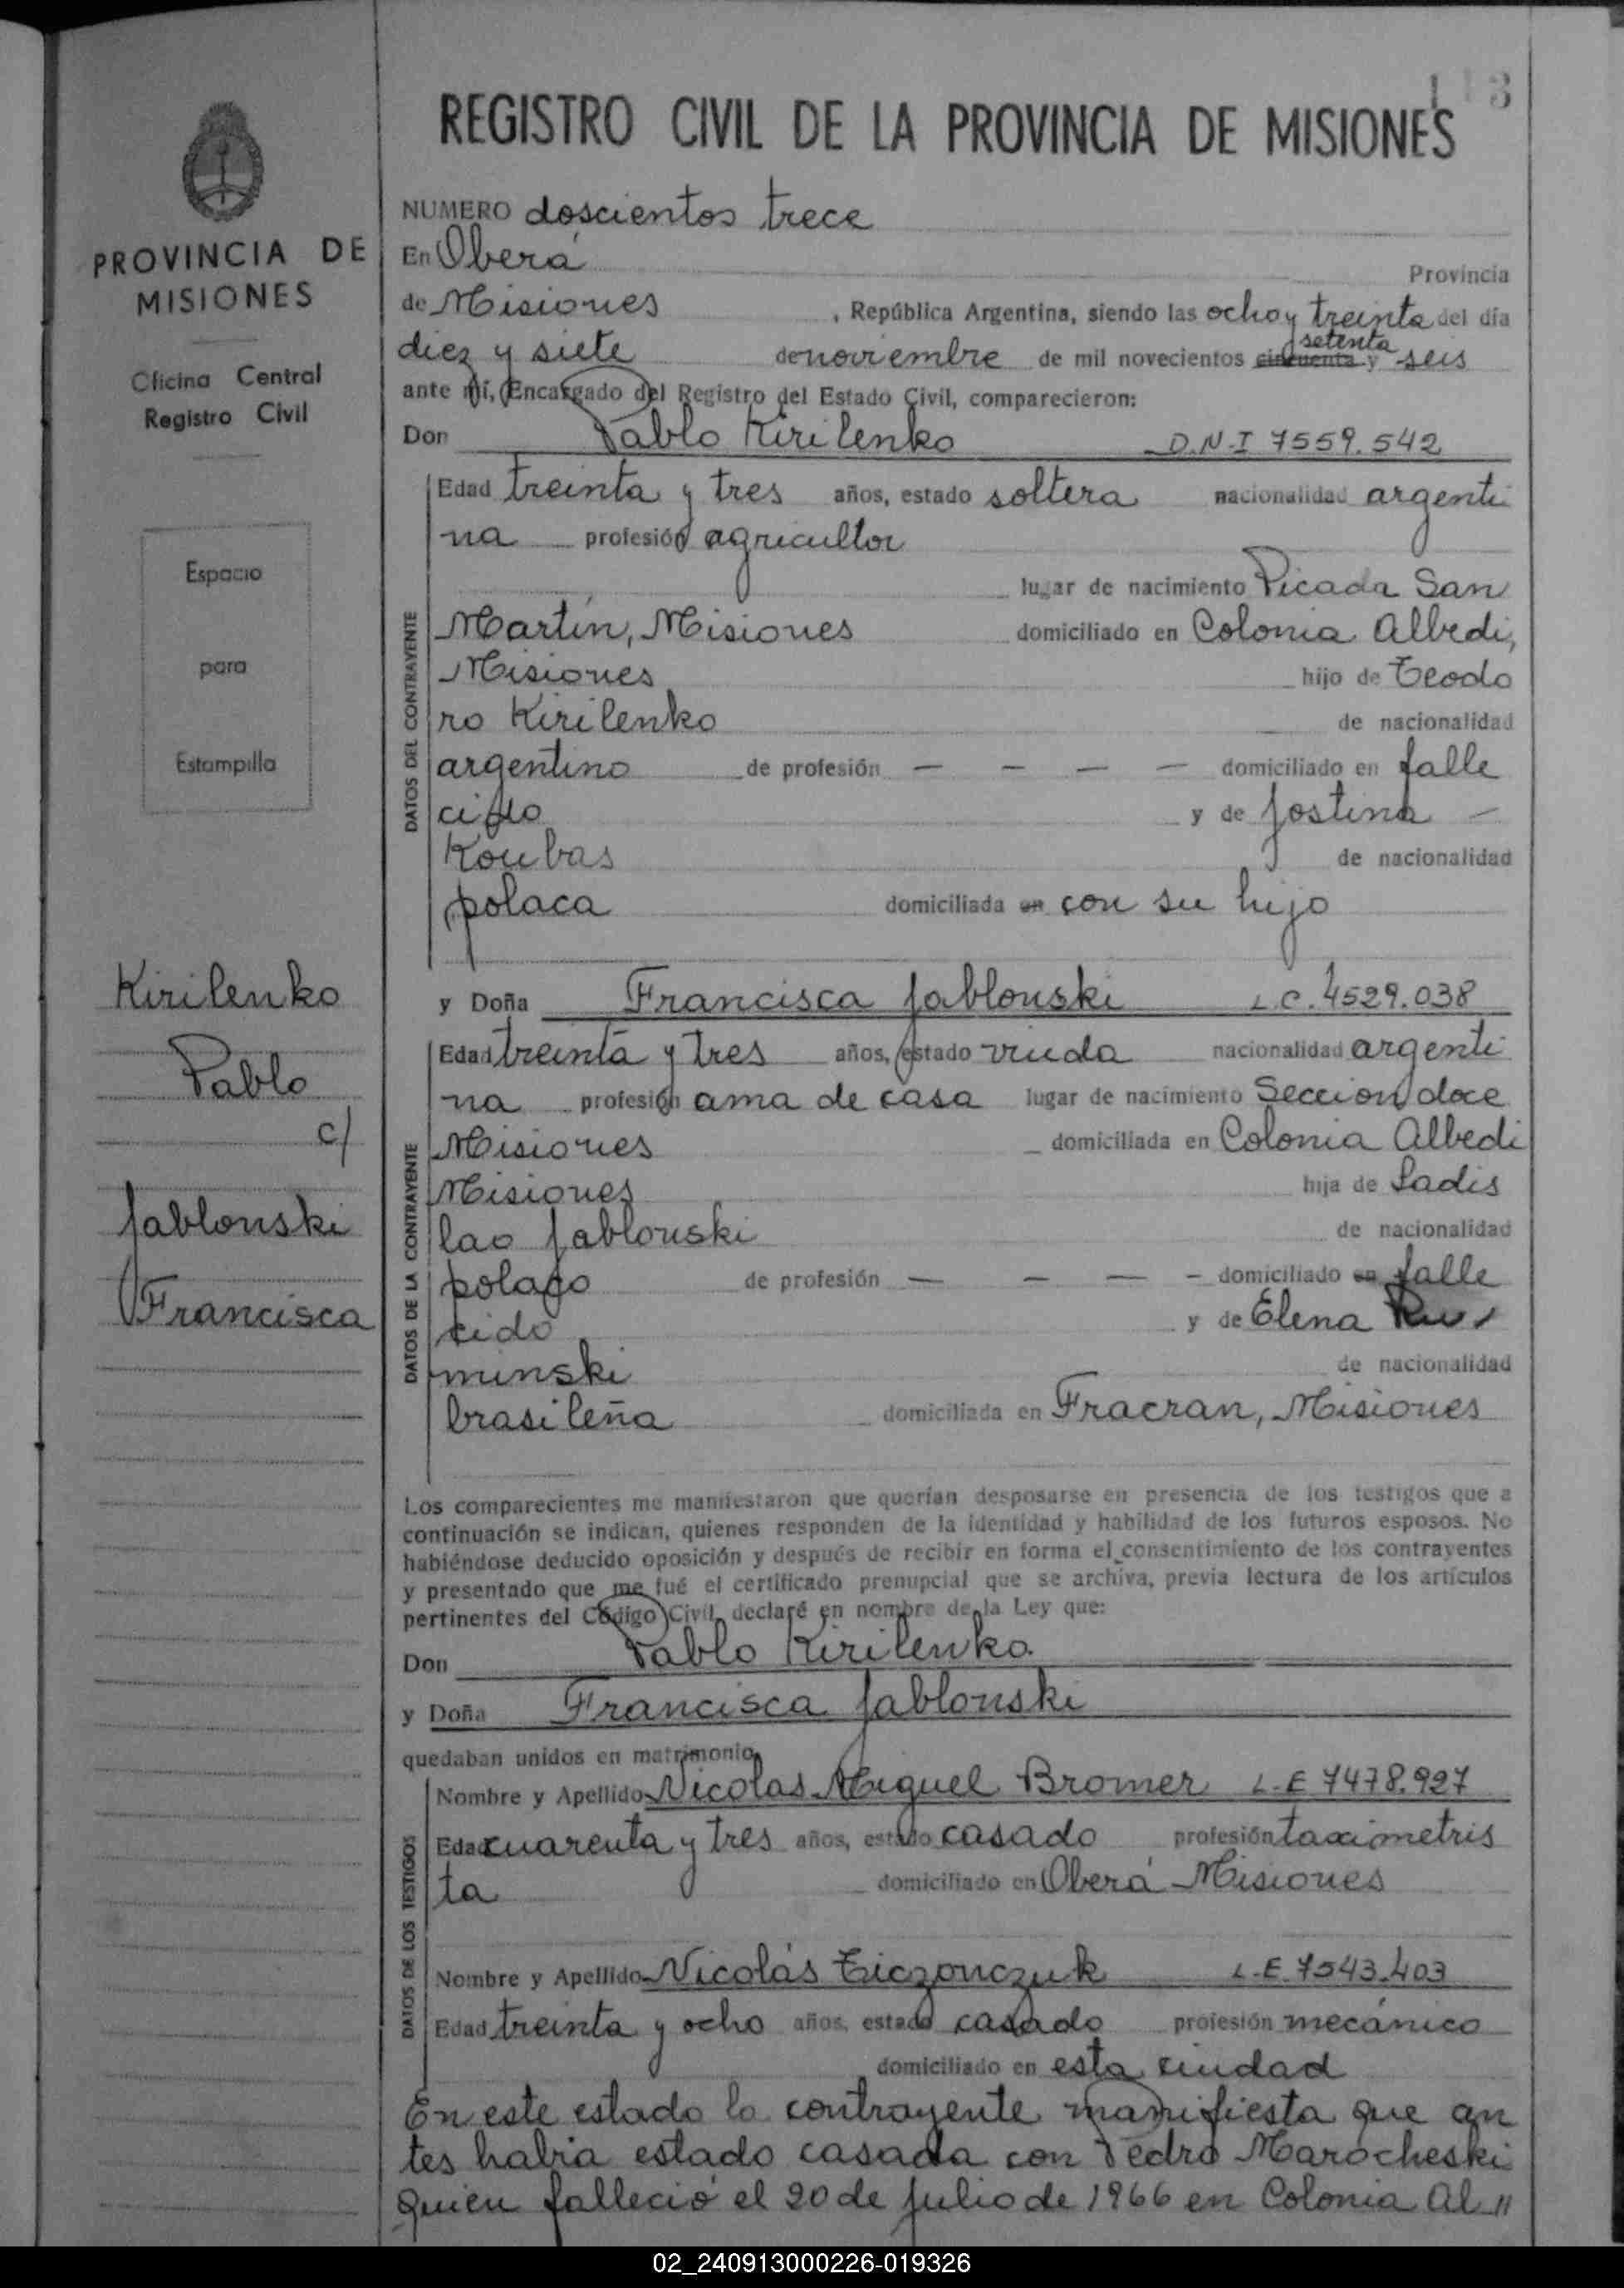 113
REGISTRO CIVIL DE LA PROVINCIA DE MISIONES
PROVINCIA DE
MISIONES
Oficina Central
Registro Civil
Espacio
para
Estampilla
Kirilenko
Pablo
c/
Jablonski
Francisca
NUMERO doscientos trece
En Oberá Provincia
de Misiones , República Argentina, siendo las ocho y treinta del día
diez y siete de noviembre de mil novecientos cincuenta setenta y seis
ante mí, Encargado del Registro del Estado Civil, comparecieron:
Don Pablo Kirilenko D.N.I 7559.542
DATOS DEL CONTRAYENTE
Edad treinta y tres años, estado soltera nacionalidad argenti
na profesión agricultor
lugar de nacimiento Picada San
Martín, Misiones domiciliado en Colonia Albedi,
Misiones hijo de Teodo
ro Kirilenko de nacionalidad
argentino de profesión — — — — domiciliado en falle
cido y de Jostina —
Koubas de nacionalidad
polaca domiciliada en con su hijo
y Doña Francisca Jablonski L.C. 4529.038
DATOS DE LA CONTRAYENTE
Edad treinta y tres años, estado viuda nacionalidad argenti
na profesión ama de casa lugar de nacimiento Seccion doce
Misiones domiciliada en Colonia Albedi
Misiones hija de Ladis
lao Jablonski de nacionalidad
polaco de profesión — — — — domiciliado en falle
cido y de Elena
minski de nacionalidad
brasileña domiciliada en Fracran, Misiones
Los comparecientes me manifestaron que querían desposarse en presencia de los testigos que a
continuación se indican, quienes responden de la identidad y habilidad de los futuros esposos. No
habiéndose deducido oposición y después de recibir en forma el consentimiento de los contrayentes
y presentado que me fué el certificado prenupcial que se archiva, previa lectura de los artículos
pertinentes del Código Civil, declaré en nombre de la Ley que:
Don Pablo Kirilenko
y Doña Francisca Jablonski
quedaban unidos en matrimonio
DATOS DE LOS TESTIGOS
Nombre y Apellido Nicolas Miguel Bromer L.E 7478.927
Edad cuarenta y tres años, estado casado profesión taximetris
ta domiciliado en Oberá Misiones
Nombre y Apellido Nicolás Ticzonczuk L.E. 7543.403
Edad treinta y ocho años, estado casado profesión mecánico
domiciliado en esta ciudad
En este estado la contrayente manifiesta que an
tes habia estado casada con Pedro Marocheski
quien falleció el 20 de julio de 1966 en Colonia Al "
02_240913000226-019326